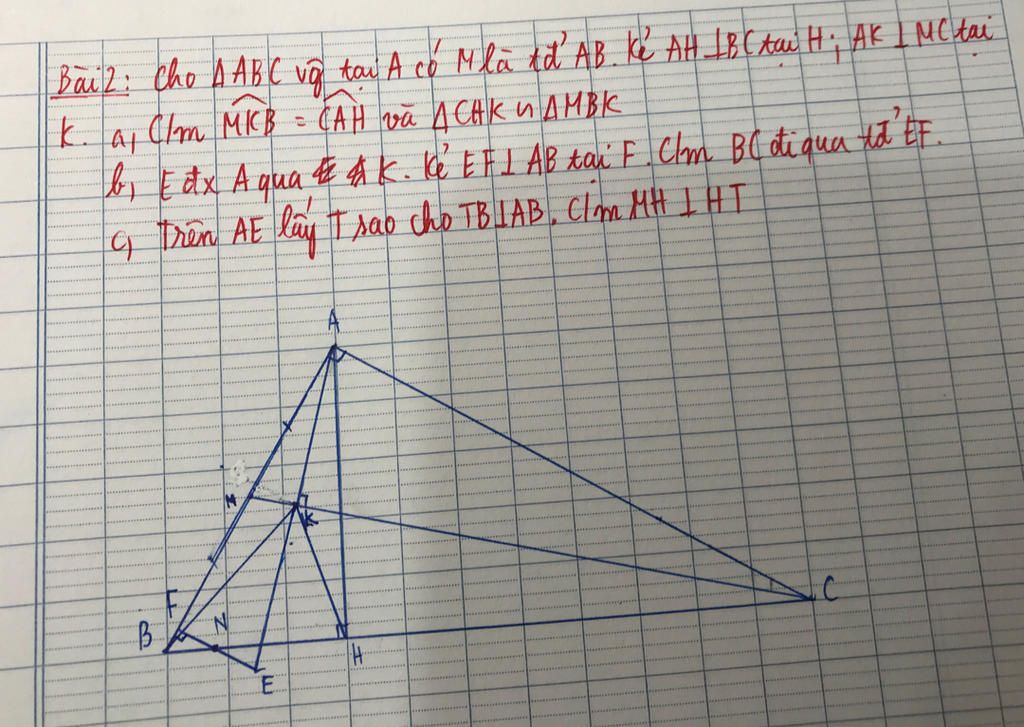 Bài 2: Cho ΔABC vg tại A có M là tđ' AB. Kẻ AH⊥BC tại H; AK⊥MC tại
K. a, C/m MKB = CAH và ΔCHK ᔕ ΔMBK
b, E đx A qua K. Kẻ EF⊥AB tại F. C/m BC đi qua tđ' EF.
c, Trên AE lấy T sao cho TB⊥AB. C/m MH⊥HT
A
M
K
C
F
B
N
H
E